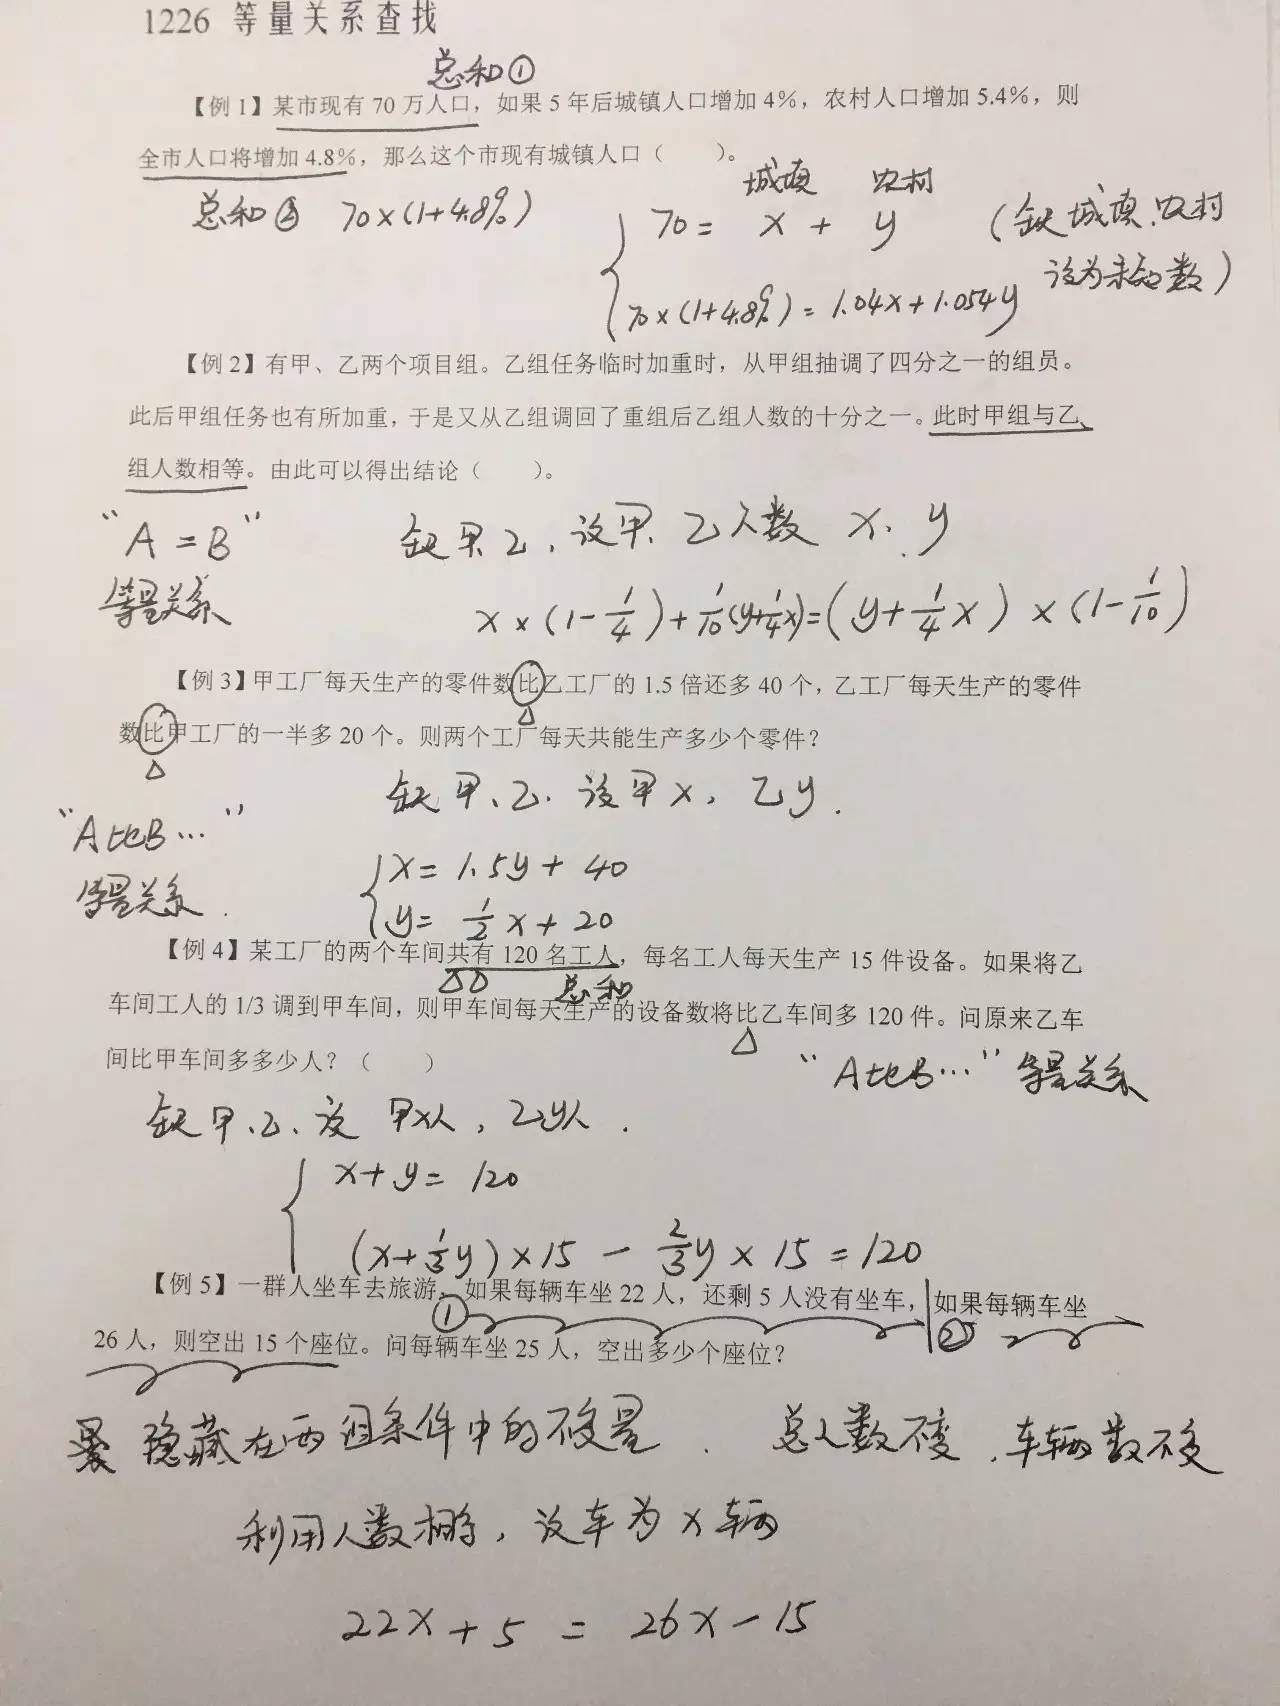 1226 等量关系查找
总和①
【例 1】某市现有 70 万人口，如果 5 年后城镇人口增加 4%，农村人口增加 5.4%，则
全市人口将增加 4.8%，那么这个市现有城镇人口（　　）。
城镇 农村
总和② 70×(1+4.8%)
70 = x + y （缺城镇、农村
设为未知数）
70×(1+4.8%) = 1.04x+1.054y
【例 2】有甲、乙两个项目组。乙组任务临时加重时，从甲组抽调了四分之一的组员。
此后甲组任务也有所加重，于是又从乙组调回了重组后乙组人数的十分之一。此时甲组与乙
组人数相等。由此可以得出结论（　　）。
“A=B” 缺甲、乙，设甲、乙人数 x、y
等量关系 x×(1-1/4)+1/10(y+1/4x)=(y+1/4x)×(1-1/10)
【例 3】甲工厂每天生产的零件数比乙工厂的 1.5 倍还多 40 个，乙工厂每天生产的零件
数比甲工厂的一半多 20 个。则两个工厂每天共能生产多少个零件？
缺甲、乙、设甲x，乙y.
“A比B…”
等量关系.
x=1.5y+40
y=1/2x+20
【例 4】某工厂的两个车间共有 120 名工人，每名工人每天生产 15 件设备。如果将乙
总和
车间工人的 1/3 调到甲车间，则甲车间每天生产的设备数将比乙车间多 120 件。问原来乙车
间比甲车间多多少人？（　　）
“A比B…” 等量关系
缺甲、乙、设 甲x人，乙y人.
x+y=120
(x+1/3y)×15 - 2/3y×15=120
【例 5】一群人坐车去旅游，如果每辆车坐 22 人，还剩 5 人没有坐车，如果每辆车坐
① ②
26 人，则空出 15 个座位。问每辆车坐 25 人，空出多少个座位？
隐藏在两组条件中的不变量. 总人数不变、车辆数不变
利用人数相等，设车为x辆
22x+5 = 26x-15